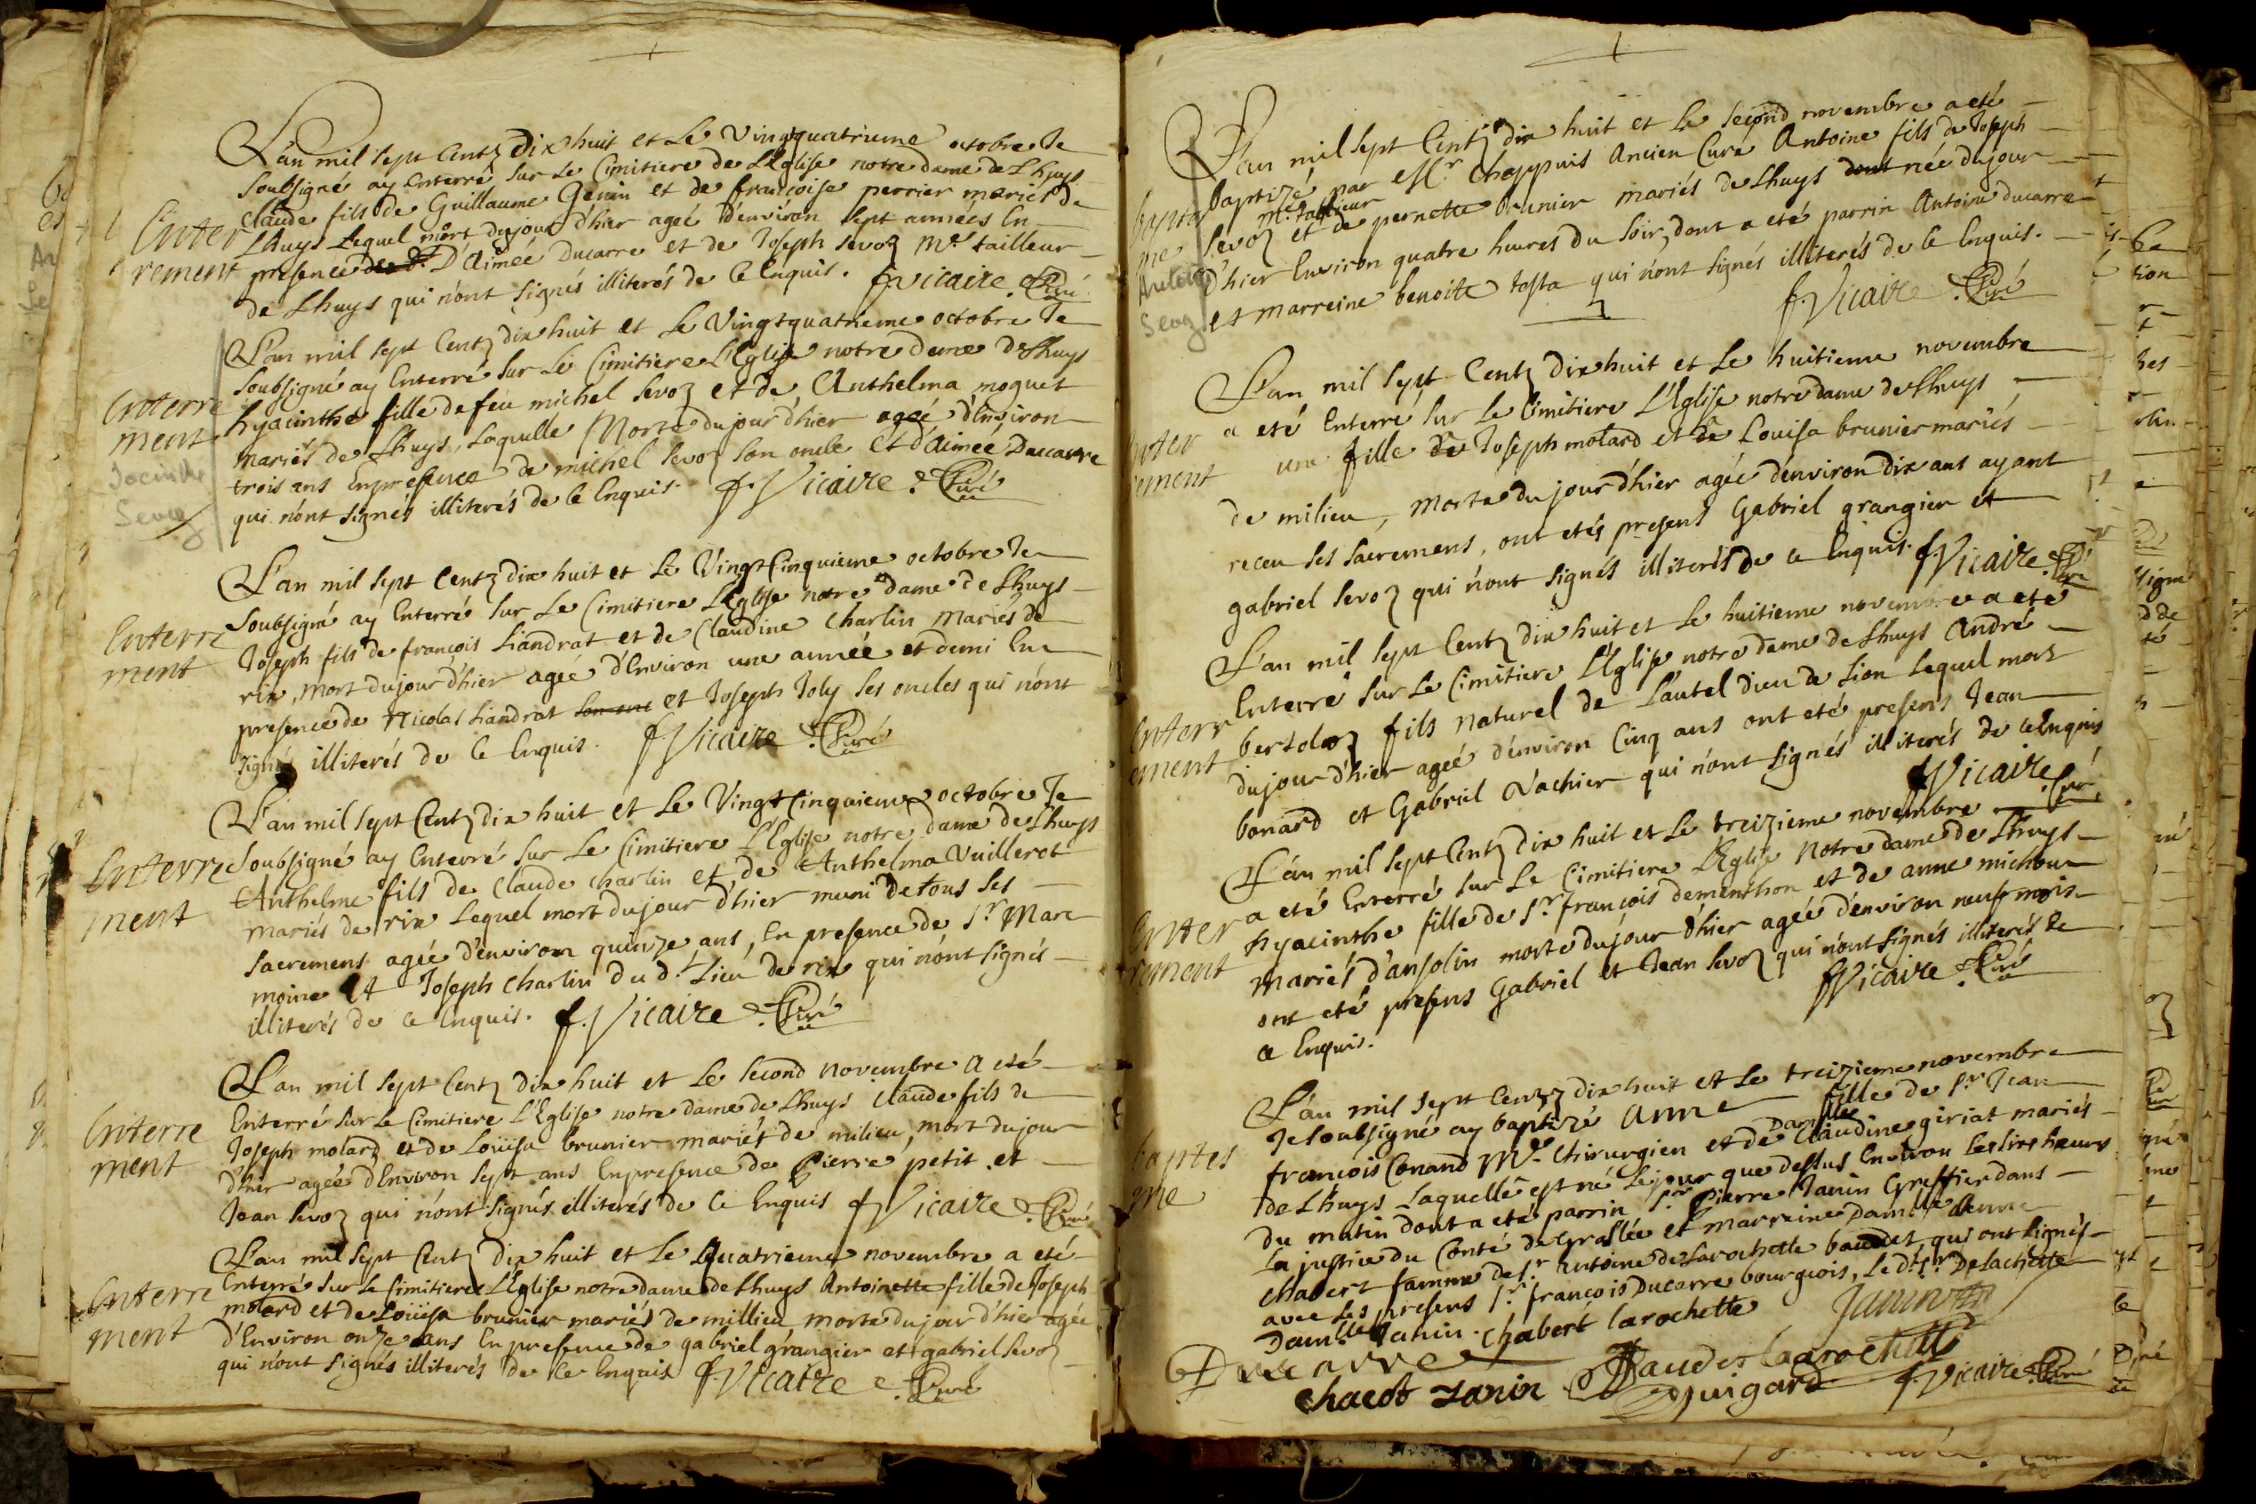 L'an mil sept Centz Dix huit et Le Vingtquatrieme octobre Je
soubsigné ay Enterré sur Le Cimitiere de L'Eglise notre dame de Lhuys
Enter
rement
claude fils de Guillaume Genin et de francoise perrier mariés de
Lhuys Lequel mort du jour d'hier ageé d'environ sept anneés En
presence D'Aimeé Ducarre et de Joseph sevoz Me tailleur
de Lhuys qui n'ont signés illiterés de Ce Enquis. f Vicaire Curé
L'an mil sept Centz dix huit et Le Vingtquatrieme octobre Je
soubsigné ay Enterré sur Le Cimitiere L'Eglise notre dame de Lhuys
Enterre
ment
Jacinthe
Sevoz
hyacinthe fille de feu michel sevoz et de Anthelma moquet
mariés de Lhuys, Laquelle Morte du jour d'hier ageé d'Environ
trois ans Enpresence de michel sevoz son oncle et d'Aimée Ducarre
qui n'ont signés illiterés de Ce Enquis. f. Vicaire. Curé
L'an mil sept Centz dix huit et Le Vingt Cinquieme octobre Je
soubsigné ay Enterré sur Le Cimitiere L'Eglise notre dame de Lhuys
Enterre
ment
Joseph fils de francois Liandrat et de Claudine Charlin Mariés de
rix, mort du jour d'hier ageé d'Environ une année et demi En
presence de Nicolas Liandrat et Joseph Joly ses oncles qui n'ont
signé illiterés de Ce Enquis. f Vicaire. Curé
L'an mil sept Centz dix huit et Le Vingt Cinquieme octobre Je
Enterre
ment
soubsigné ay Enterré sur Le Cimitiere L'Eglise notre dame de Lhuys
Anthelme fils de Claude charlin et de Anthelma Vuillerot
mariés de rix Lequel mort du jour d'hier muni de tous ses
sacremens ageé d'environ quinze ans, En presence de Sr Marc
moine Et Joseph Charlin du d. Lieu de rix qui n'ont signés
illiterés de Ce Enquis. f. Vicaire. Curé
L'an mil sept Centz dix huit et Le second novembre a eté
Enterre
ment
Enterré sur Le Cimitiere L'Eglise notre dame de Lhuys Claude fils de
Joseph molard et de Loüisa brunier mariés de milieu, mort du jour
d'hier ageé d'Environ sept ans Enpresence de Pierre petit et
Jean sevoz qui n'ont signés illiterés de Ce Enquis f Vicaire. Curé
L'an mil sept Centz dix huit et Le Quatrieme novembre a eté
Enterre
ment
Enterré sur Le Cimitiere L'Eglise notre dame de Lhuys Antoinette fille de Joseph
molard et de Loüisa brunier mariés de millieu morte du jour d'hier agée
d'Environ onze ans En presence de gabriel grangier et gabriel sevoz
qui n'ont signés illiterés de Ce Enquis f. Vicaire. Curé
L'an mil sept Centz dix huit et Le second novembre a eté
baptes
me
Antoine
Sevoz
baptizé par Mr. Choppuis Ancien Curé Antoine fils de Joseph
me tailleur
sevoz et de pernette brunier mariés de Lhuys née du jour
d'hier Environ quatre heures du soir, dont a eté parrin Antoine ducarre
et marreine benoitte tosta qui n'ont signés illiterés de Ce Enquis.
f Vicaire. Curé
L'an mil sept Centz dix huit et Le huitieme novembre
Enter
rement
a eté Enterré sur Le Cimitiere L'Eglise notre dame de Lhuys
une fille de Joseph molard et de Louisa brunier mariés
de milieu, morte du jour d'hier agée d'environ dix ans ayant
receu ses sacremens, ont etés presens Gabriel grangier et
gabriel sevoz qui n'ont signés illiterés de ce Enquis. f. Vicaire. Curé
L'an mil sept Centz dix huit et Le huitieme novembre a eté
Enterr
ement
Enterré sur Le Cimitiere L'Eglise notre dame de Lhuys André
bertoloz fils naturel de L'autel dieu de Lion Lequel mort
du jour d'hier ageé d'environ Cinq ans ont eté presens Jean
bonard et Gabriel Vachier qui n'ont signés illiterés de Ce Enquis
f Vicaire. Curé
L'an mil sept Centz dix huit et Le treizieme novembre
Enter
rement
a eté Enterré sur Le Cimitiere L'Eglise Notre dame de Lhuys
hyacinthe fille de Sr. francois dementhon et de anne michoux
mariés d'ansolin morte du jour d'hier agée d'environ neuf mois
ont eté presens Gabriel et Jean sevoz qui n'ont signés illiterés de
Ce Enquis. f Vicaire. Curé
L'an mil sept Centz dix huit et Le treizieme novembre
baptes
me
Je soubsigné ay baptizé Anne fille de Sr Jean
francois Conand Me. Chirurgien et de Damlle Claudine giriat mariés
de Lhuys Laquelle est né Le jour que dessus Environ Les six heures
du matin dont a eté parrin Sr Pierre Janin Greffier dans
La justice du Conté de Groslée et marreine Damlle Anne
chabert famme de Sr Antoine de Larochette baudet qui ont signés
avec Les presens Sr. francois Ducarre bourgeois, Le dt. Sr Delachette
Damlle Janin. Chabert larochette Janin
Ducarre Baudet Larochette
chacot Janin Guigard f Vicaire. Curé